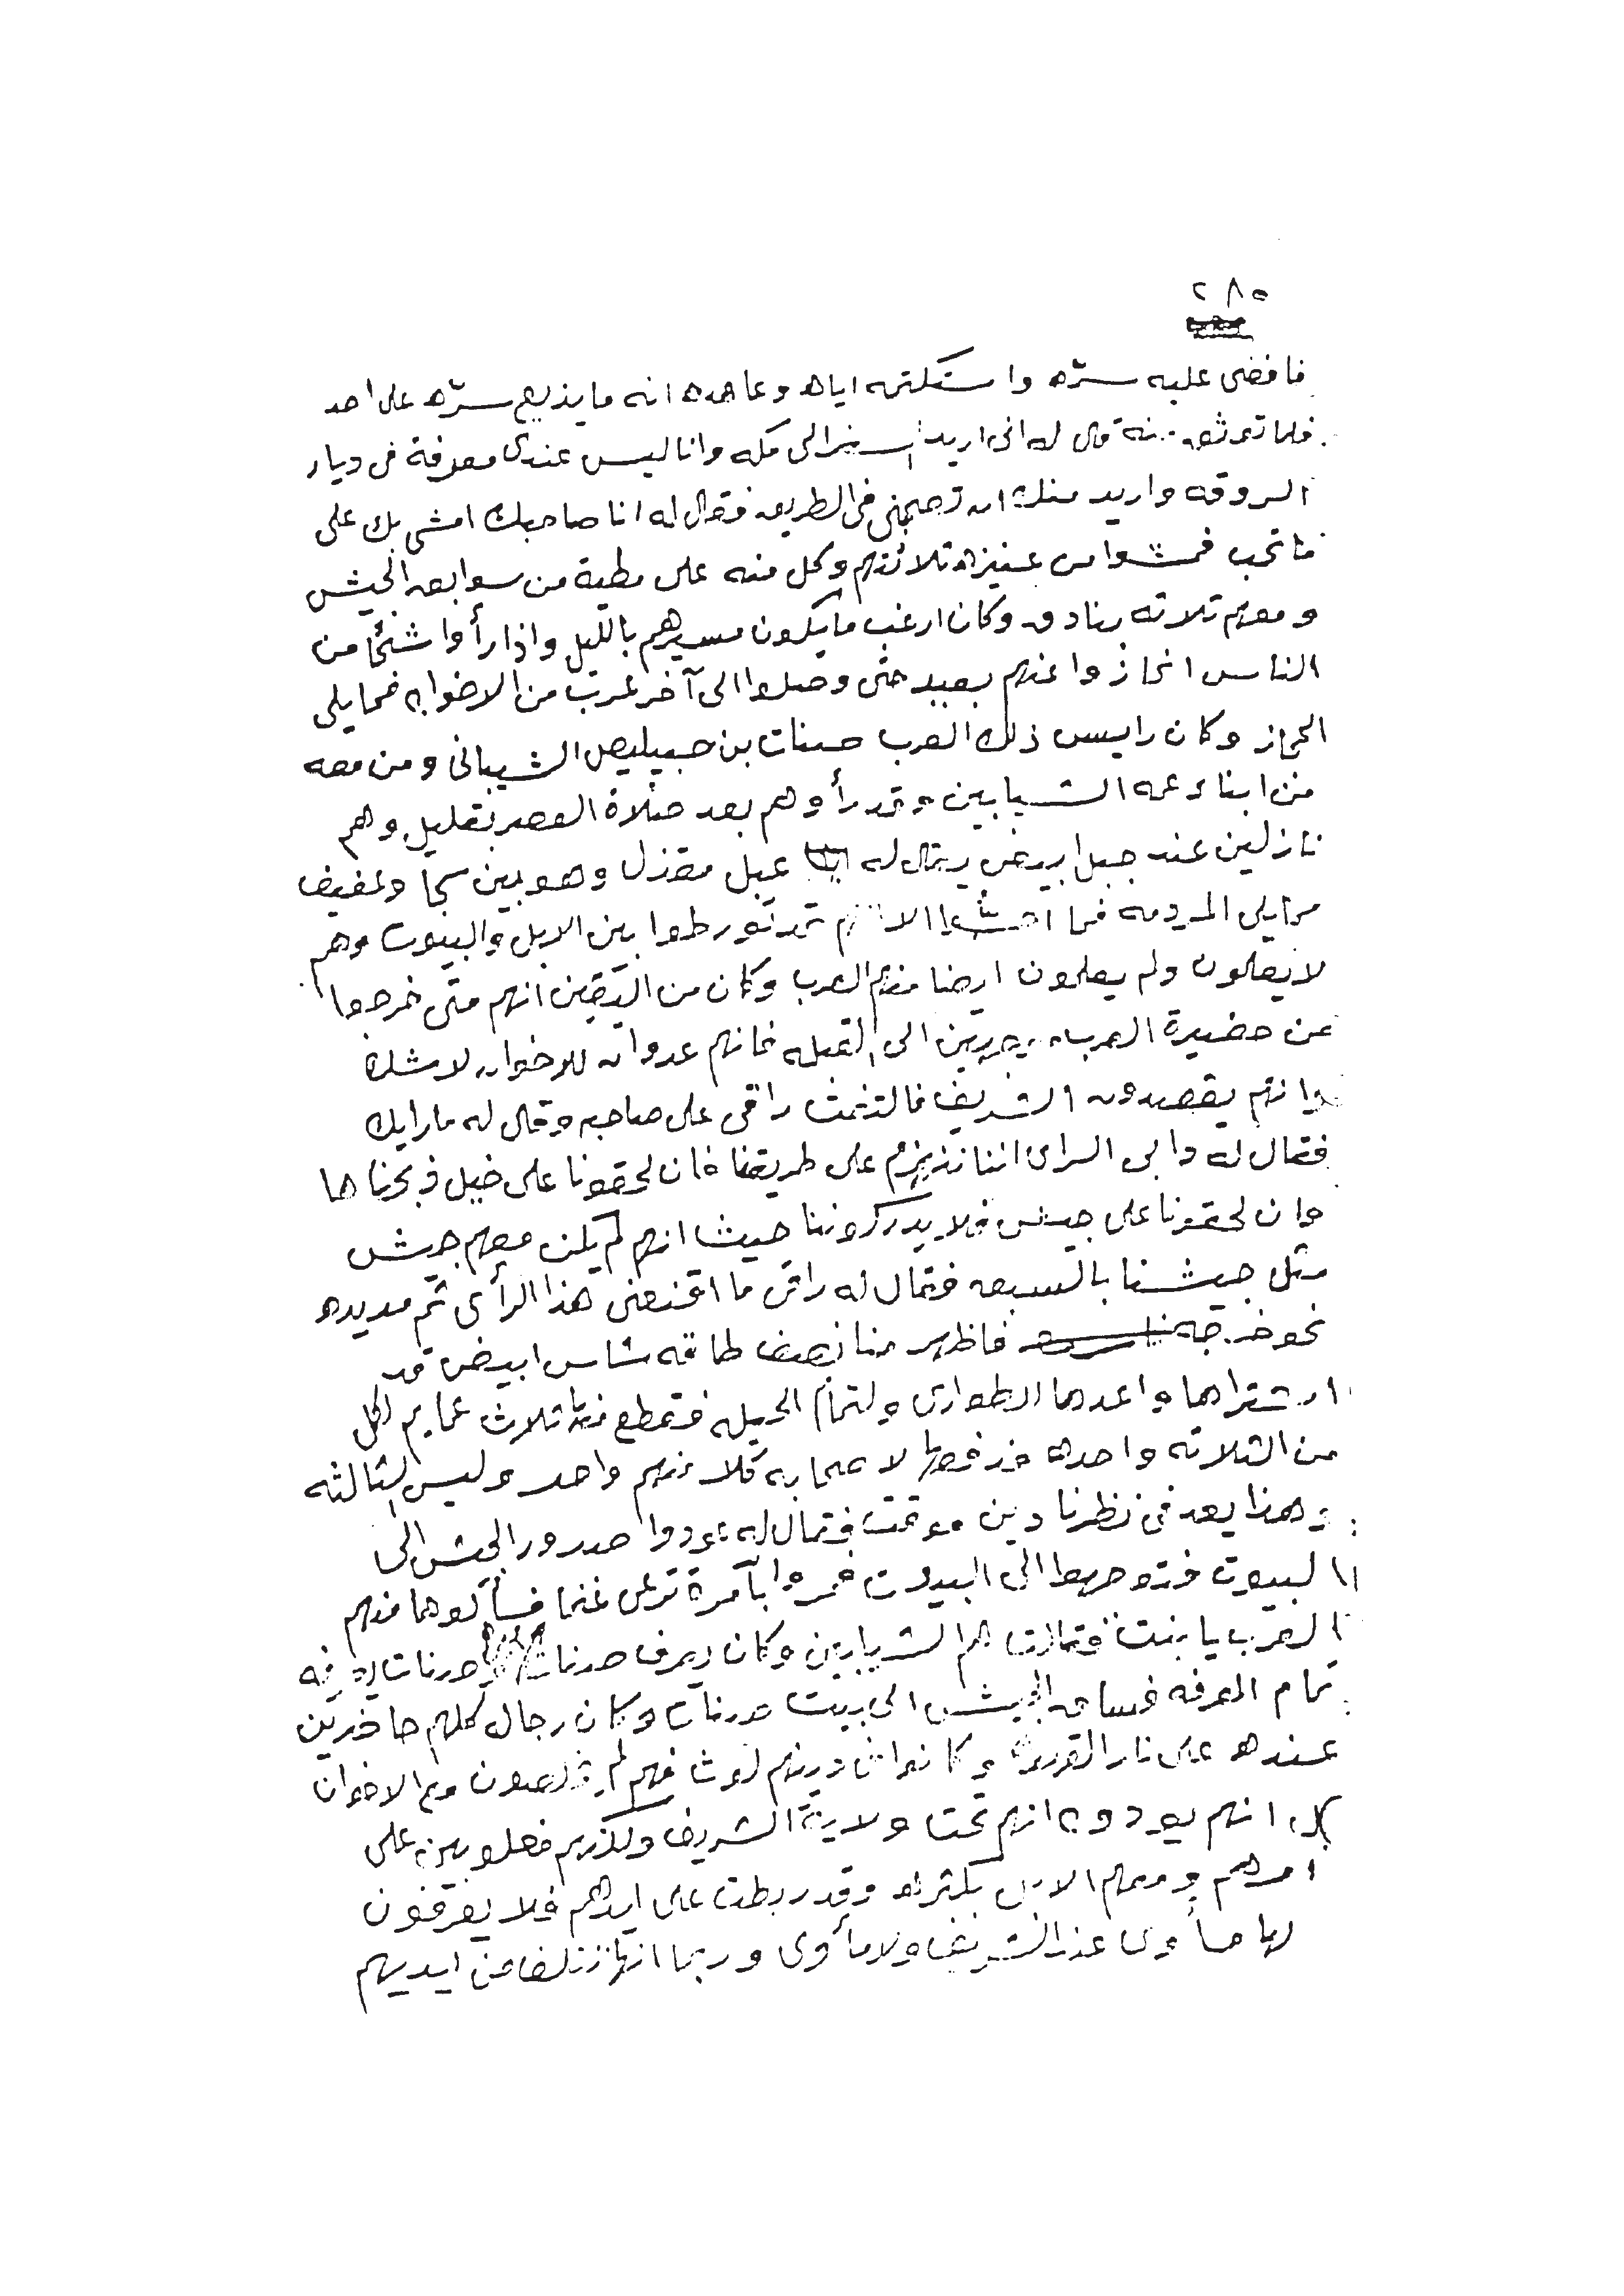 ٢٨٥
فافضى عليه سرّه واستكتمه اياه وعاهده انه ما يذيع سرّه على احد
فلما توثق منه قال له انى اريد اسفر الى مكه وانا ليس عندى معرفة فى ديار
الروقه واريد منك ان تصحبنى فى الطريق فقال له انا صاحبك امشى بك على
ما تحب فمشوا من عنيزه ثلاثتهم وكل منه على مطية من سوابق الجيش
ومعهم ثلاثه بنادق وكان ارغب ما يكون مسيرهم بالليل واذا رأوا شيئا من
الناس انحازوا عنهم بعيد حتى وصلوا الى آخر عرب من الاخوان فما يلى
الحجاز وكان رايس ذلك العرب حسنات بن جبيليص الشيبانى ومن معه
من ابناء عمه الشيابين وقد رأوهم بعد صلاة العصر بقليل وهم
نازلين عند جبل ابيض يقال له جبل مقزل وهو بين سجا وعفيف
مما يلى المردمه فما الا قد تورطوا بين الابل والبيوت وهم
لا يعلمون ولم يعلمون ايضا منهم العرب وكان من اليقين انهم متى خرجوا
عن حضيرة العرب الى القبله فانهم عدوان للاخوان لا شك
وانهم يقصدون الشريف فالتفت راقى على صاحبه وقال له ما رايك
فقال له دابى الراى اننا ننهزم على طريقنا فان لحقونا على خيل ذبحناها
وان لحقونا على جيش فلا يدركوننا حيث انهم لم يكن معهم جيش
مثل جيشنا بالسبق فقال له راقى ما اقنعنى هذا الرأى ثم مد يده
نحو خرجه فاظهر منها نصف طاقه شاش ابيض قد
اشتراها واعدها للطوارى ولتمام الحيله فقطع منها ثلاث عمايم لكل
من الثلاثه واحده فدفعها لاصحابه كلا منهم واحد ولبس الثالثه
وهذا يعد فى نظرنا دين موقت فقال له ردوا صدور الجيش الى
البيوت فتوجهوا الى البيوت فمروا بآمرة ترعى غنما فسألوها منهم
العرب يا بنت فقالت هم الشيابين وكان يعرف حسنات وحسنات يعرفه
تمام المعرفه فساق الجيش الى بيت حسنات وكان رجال كلهم حاضرين
عنده على نار القهوه وكانوا فى دينهم لوث فهم لم يخلصون مع الاخوان
بل انهم يودون انهم تحت ولاية الشريف ولكنهم مغلوبين على
امرهم ومعهم الابل بكثره وقد ربطت على ايدهم فلا يعرفون
لها مأوى عند الشريف ولا مأوى وربما انها تتلف من ايديهم